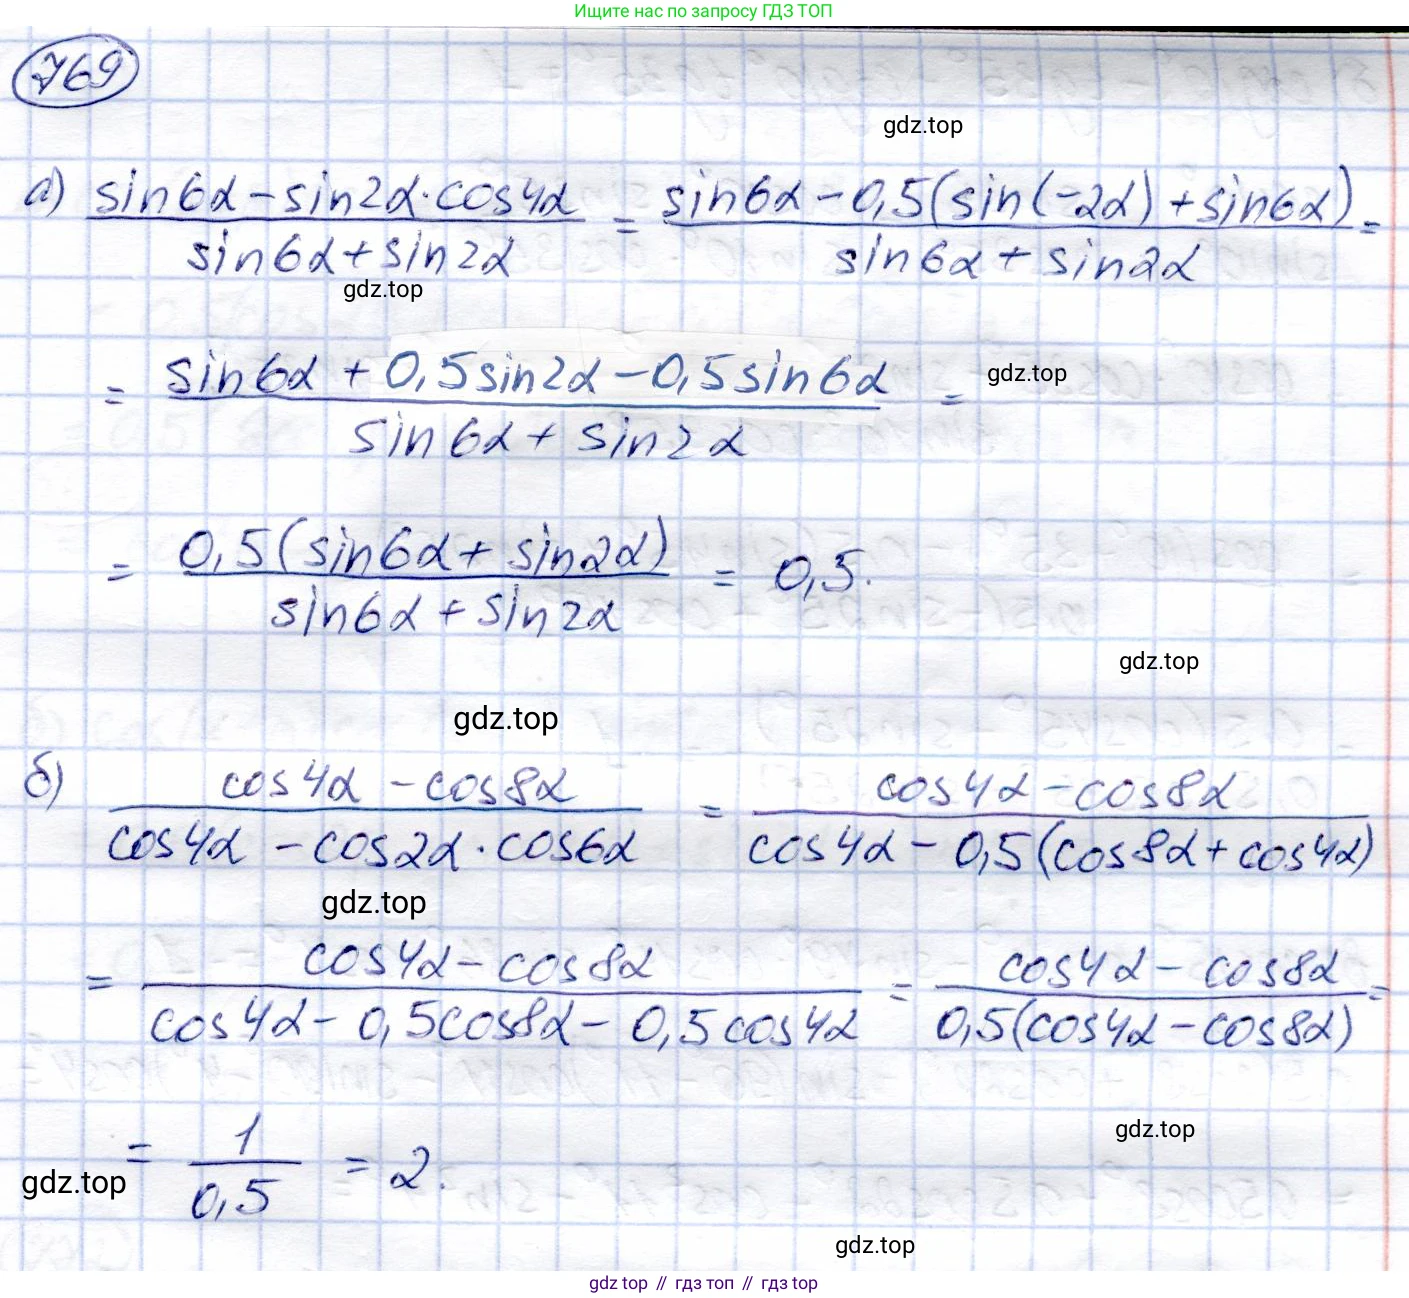 Ищите нас по запросу ГДЗ ТОП
769
gdz.top
а) (sin6α − sin2α·cos4α)/(sin6α + sin2α) = (sin6α − 0,5(sin(−2α) + sin6α))/(sin6α + sin2α) =
gdz.top
= (sin6α + 0,5sin2α − 0,5sin6α)/(sin6α + sin2α) =
gdz.top
= 0,5(sin6α + sin2α)/(sin6α + sin2α) = 0,5.
gdz.top
gdz.top
б) (cos4α − cos8α)/(cos4α − cos2α·cos6α) = (cos4α − cos8α)/(cos4α − 0,5(cos8α + cos4α))
gdz.top
= (cos4α − cos8α)/(cos4α − 0,5cos8α − 0,5cos4α) = (cos4α − cos8α)/(0,5(cos4α − cos8α)) =
gdz.top
= 1/0,5 = 2.
gdz.top
gdz.top
gdz top // гдз топ // гдз top